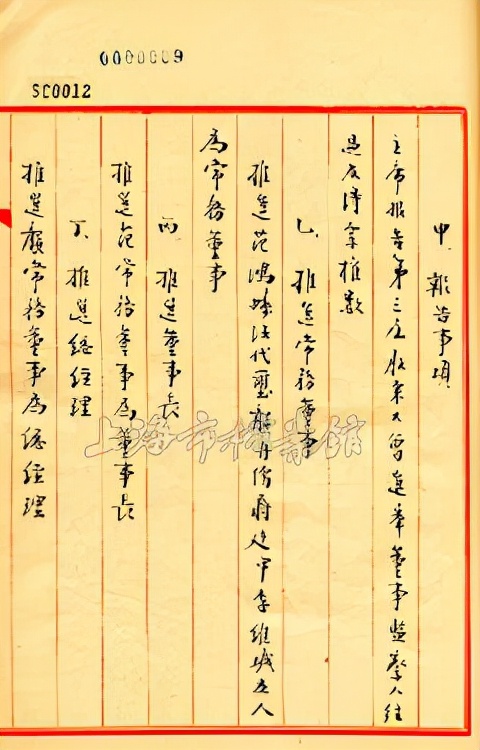 0000009
SC0012
甲、報告事項
主席報告第三屆股東大會選舉董事監察人經
過及得票權數
乙、推選常務董事
推選范鴻 法代 丹 李維城五人
為常務董事
丙、推選董事長
推選范常務董事為董事長
丁、推選總經理
推選 常務董事為總經理
上海市檔案館